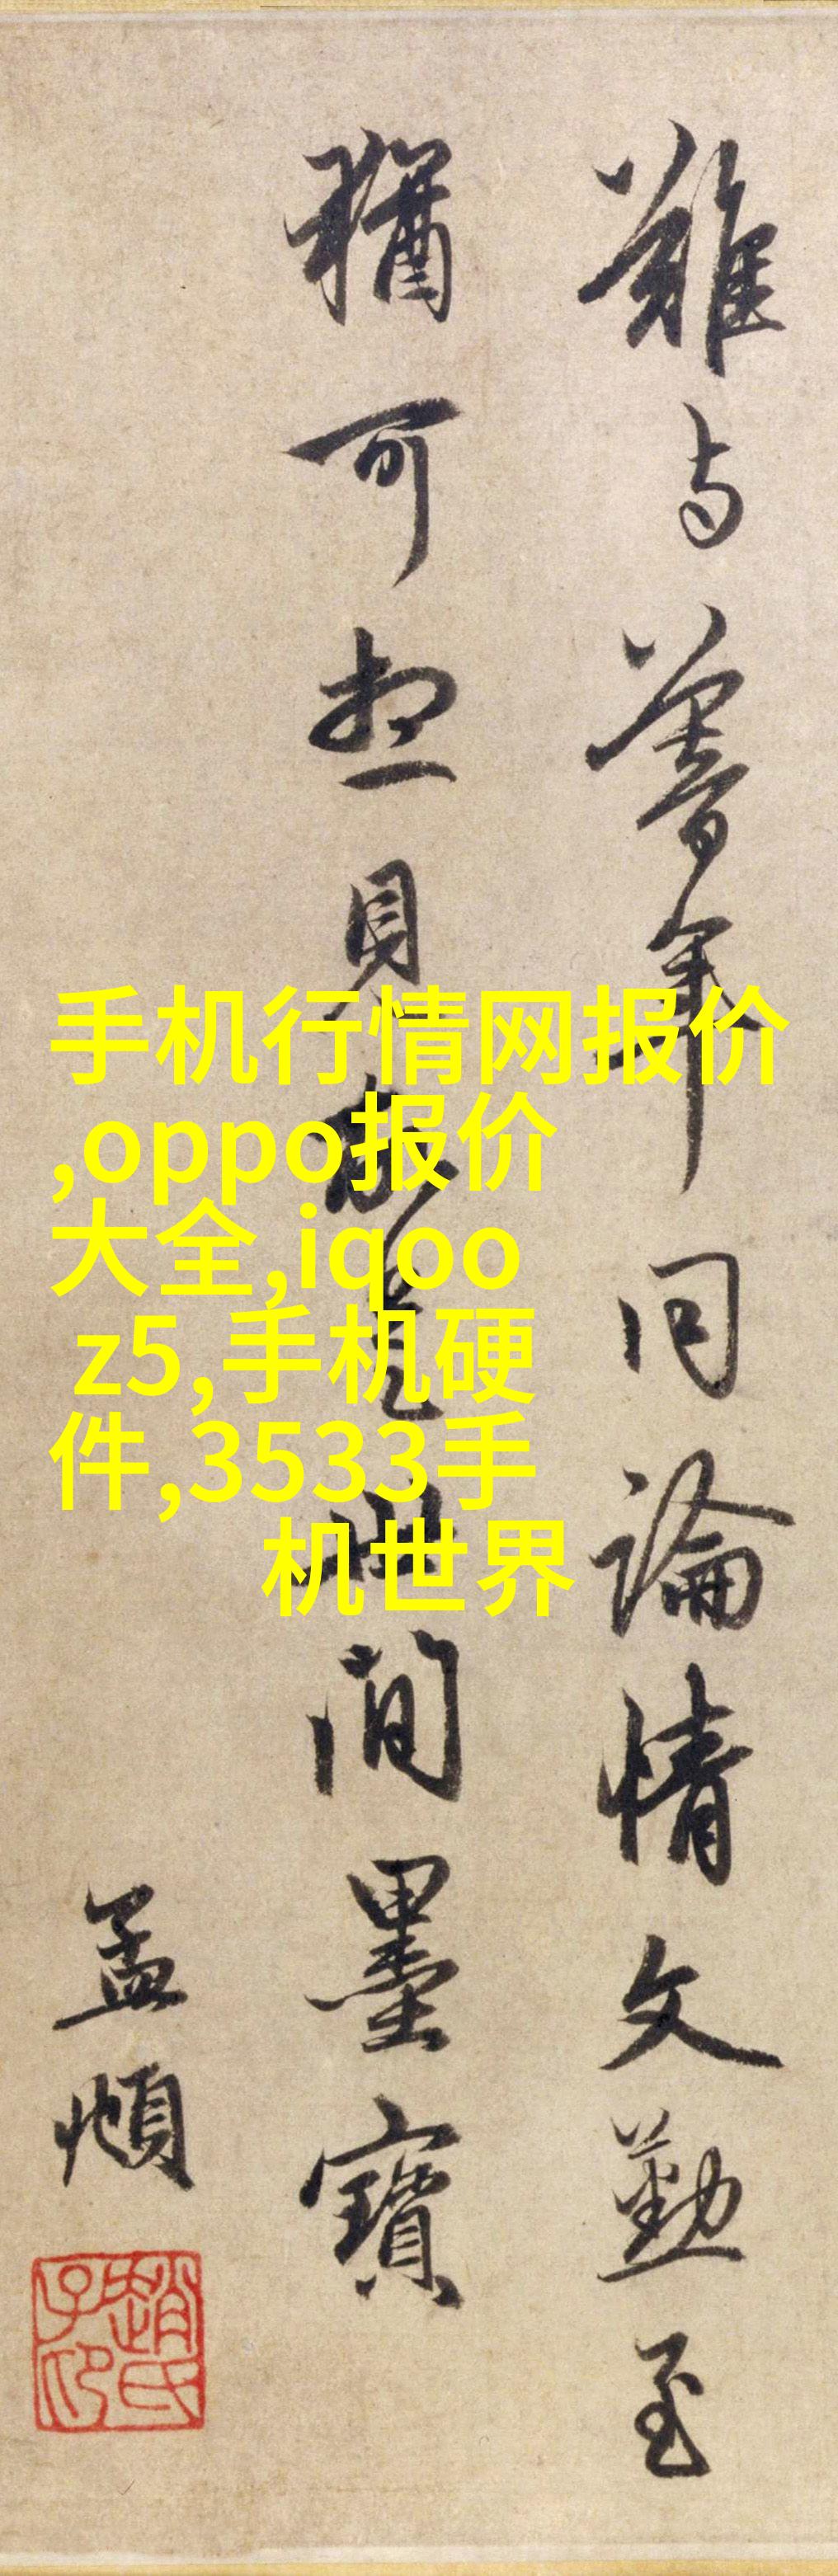 難与暮年同論情文勤至
猶可想見故是世間墨寶
孟頫
趙氏子昂
手机行情网报价
,oppo报价
大全,iqoo
z5,手机硬
件,3533手
机世界